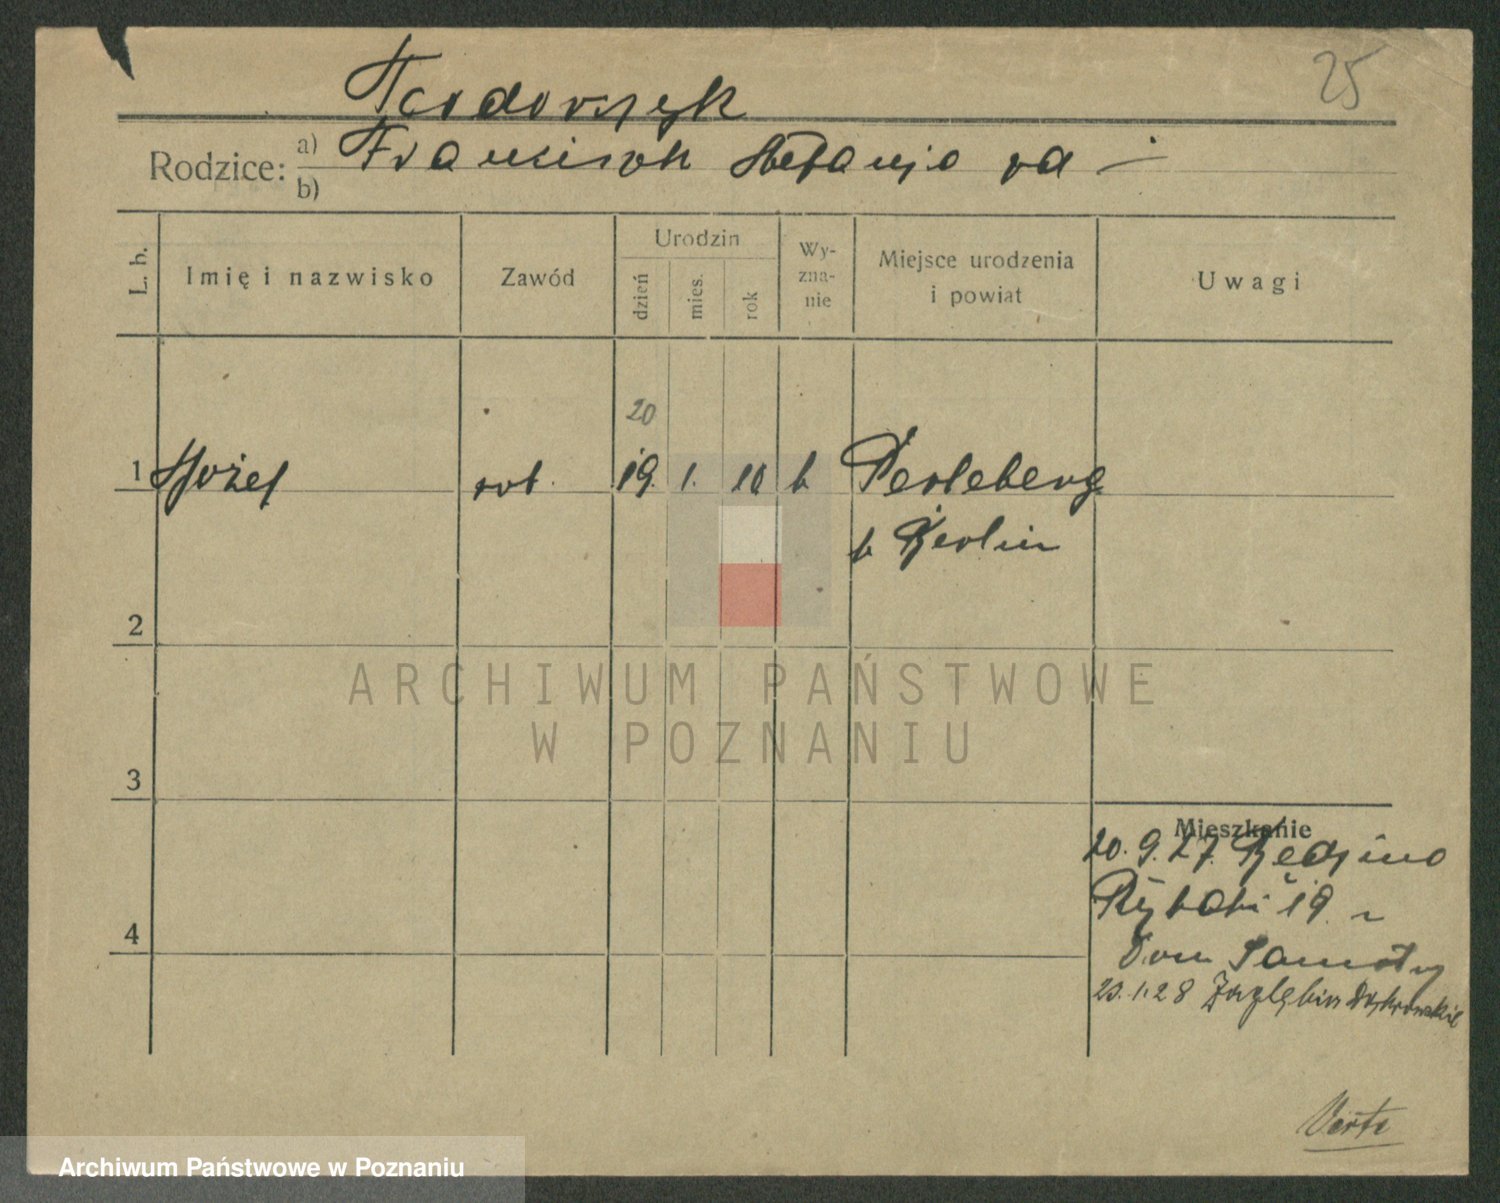 25
Teodorczyk
Rodzice: a) Franciszek Stefanja za —
b)
L. b.
Imię i nazwisko
Zawód
Urodzin
dzień
mies.
rok
Wy-
zna-
nie
Miejsce urodzenia
i powiat
Uwagi
20
1 Józef rob. 19. 1. 10 k Perleberg
k Berlin
2
3
4
Mieszkanie
20.9.27. Będzino
Rybaki 19
Dom Samotny
23.1.28 Zagłębia Dąbrowskie
Verte
ARCHIWUM PAŃSTWOWE
W POZNANIU
Archiwum Państwowe w Poznaniu